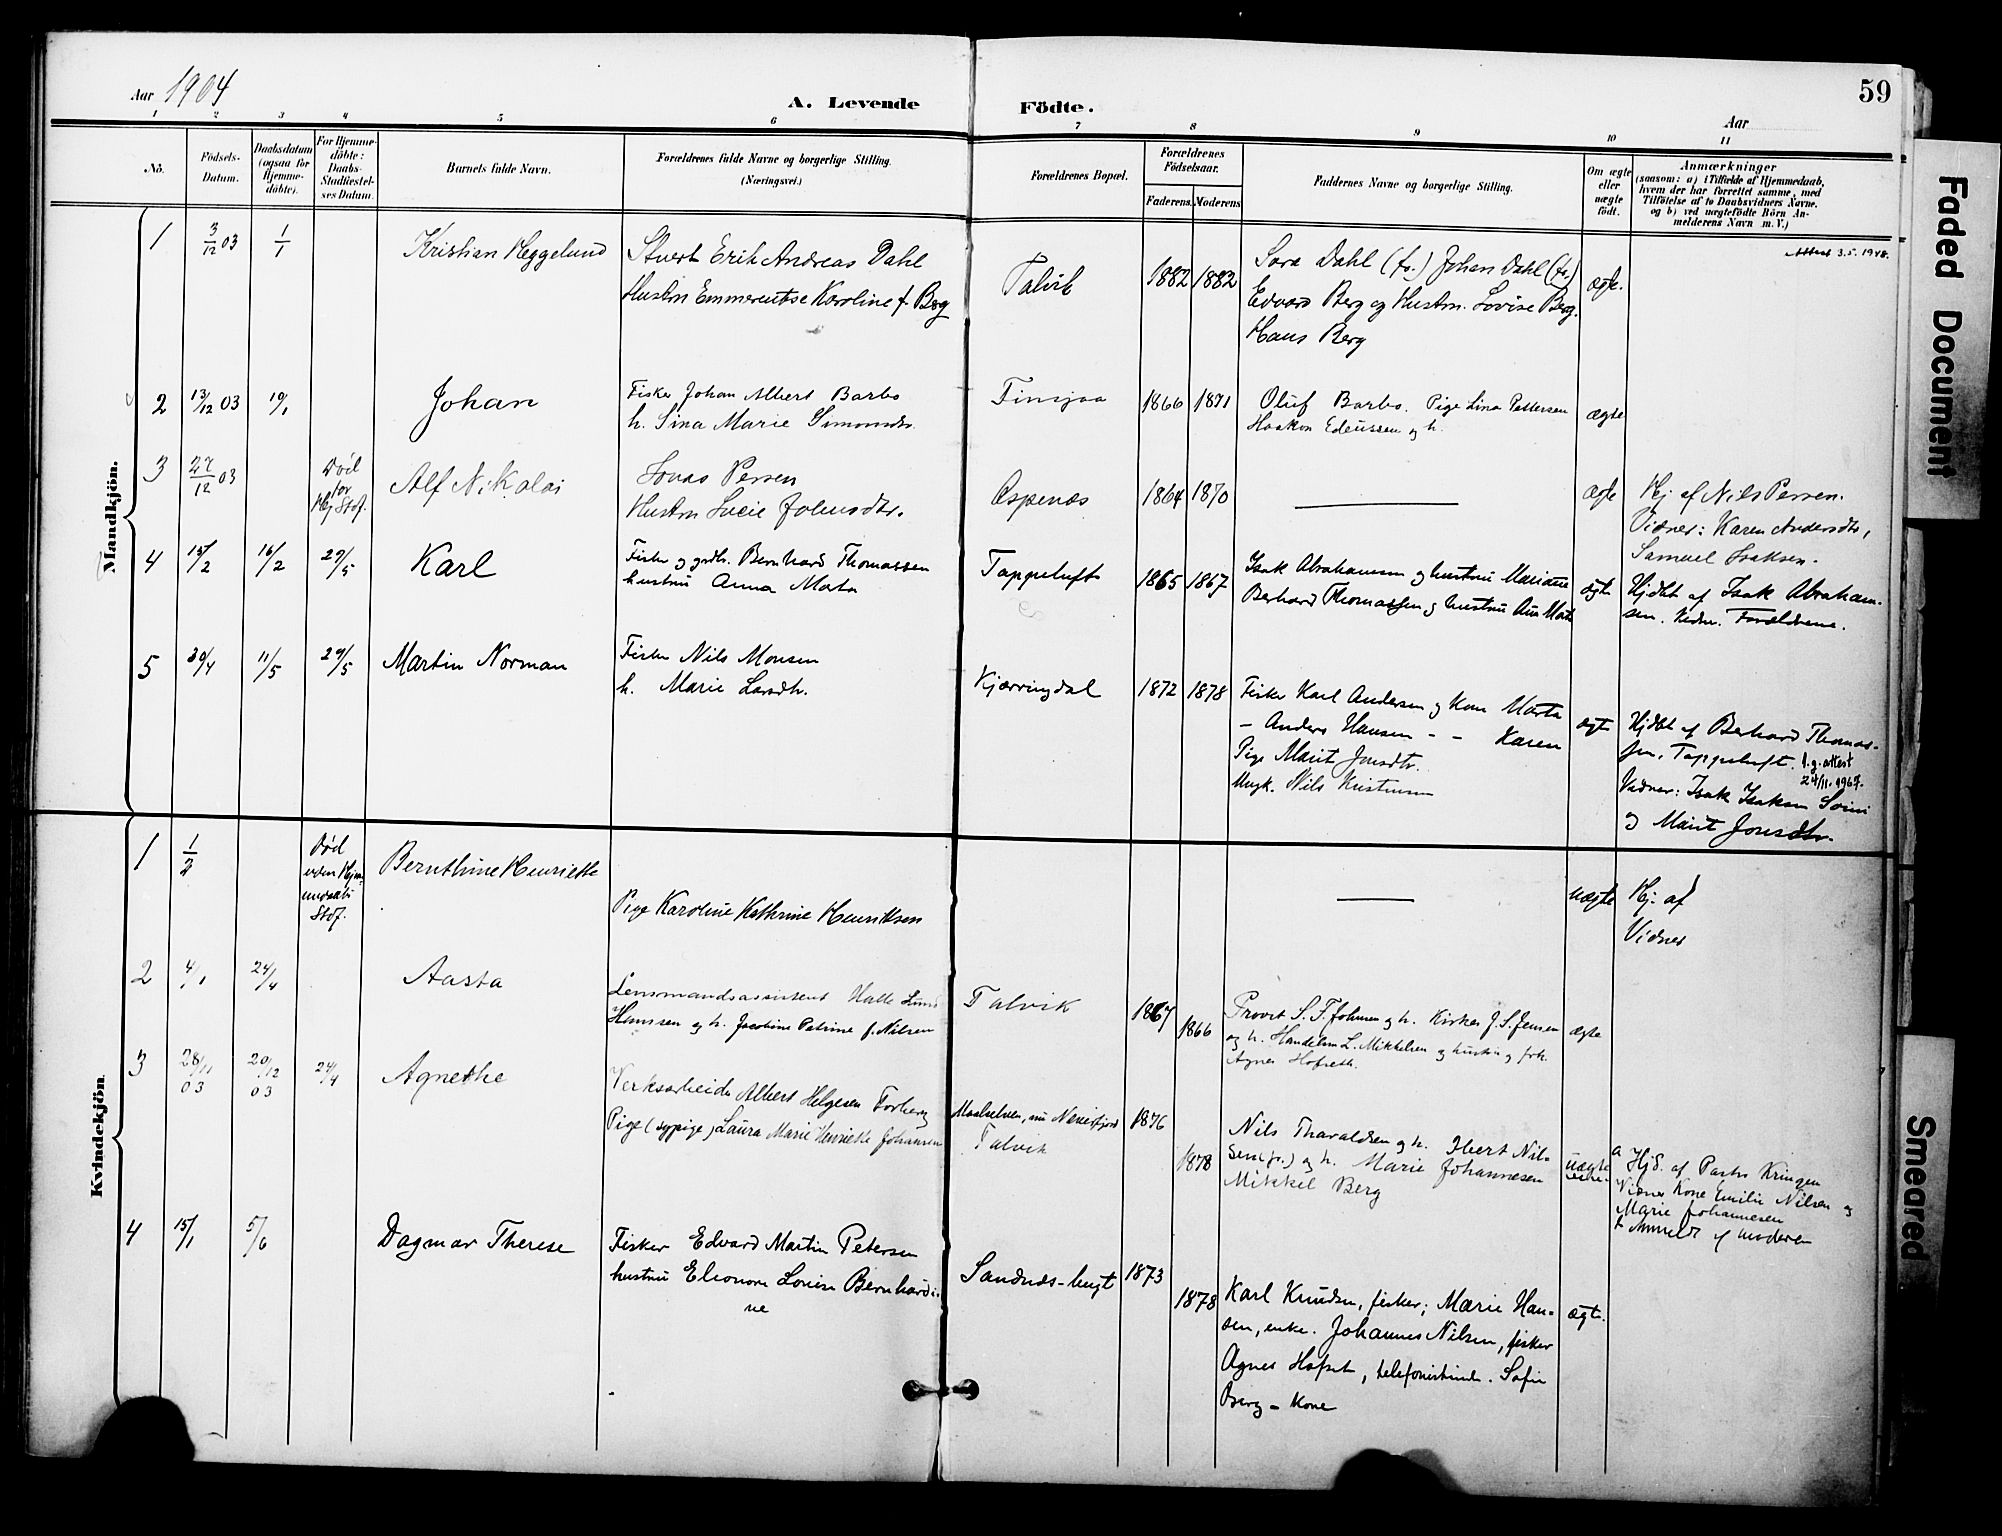 Aar 1904
A. Levende Födte.
59
Aar
1 2 3 4 5 6 7 8 9 10 11
No.
Födsels-
Datum.
Daabsdatum
(ogsaa for
Hjemme-
döbte).
For Hjemme-
döbte:
Daabs-
Stadfæstel-
ses Datum.
Barnets fulde Navn.
Forældrenes fulde Navne og borgerlige Stilling.
(Næringsvei.)
Forældrenes Bopæl.
Forældrenes
Födselsaar.
Faderens. Moderens.
Faddernes Navne og borgerlige Stilling.
Om ægte
eller
uægte
födt.
Anmærkninger
(saasom: a) i Tilfælde af Hjemmedaab,
hvem der har forrettet samme, med
Tilföielse af to Daabsvidners Navne.
og b) ved uægtefödte Börn An-
melderens Navn m. V.)
Mandkjön.
1 3/12 03 1/1 Kristian Heggelund
Stuert Erik Andreas Dahl
Hustru Emmerentse Karoline f. Berg
Talvik 1882 1882
Sara Dahl (fr.) Johan Dahl (fr.)
Edvard Berg og Hustru. Lovise Berg.
Hans Berg
ægte.
Attest 3.5.1948.
2 13/12 03 19/1 Johan
Fisker Johan Albert Barbo
h. Sina Marie Simonsdtr.
1866 1871
Oluf Barbo. Pige Lina Pettersen
Haakon Edeussen og h.
ægte
3 27/12 03 Död for Hj Stdf. Alf Nikolai
Jonas Persen
Hustru Lucie Johnsdtr.
Aspenæs 1864 1870
ægte
Hj af Nils Persen.
Vidner: Karen Andersdtr,
Samuel Isaksen.
4 15/2 16/2 29/5 Karl
Fisker og grdbr. Bernhard Thomassen
hustru Anna Marta
Tappeluft 1865 1867
Isak Abrahamsen og hustru Mariane
Berhard Thomassen og hustru Ana Marta
ægte
Hjdbt af Isak Abraham-
sen. Vidner. Forældrene.
5 30/4 11/5 29/5 Martin Norman
Fisker Nils Monsen
h. Marie Larsdtr.
Kjærringdal 1872 1878
Fisker Karl Andersen og kone Marta
- Anders Hansen - - Karen
Pige Marit Jonsdtr.
Ungk. Nils Kristensen
ægte
Hjdbt af Berhard Thomas-
sen, Tappeluft. f.g. attest
24/11.1967.
Vidner: Isak Isaksen Soini
og Marit Jonsdtr.
Kvindekjön
1 1/2 Död uden Hjemmedaabs Stdf. Bernthine Henriette
Pige Karoline Kathrine Henriksen
uægte
Hj. af
Vidner
2 4/1 24/4 Aasta
Lensmandsassistent Halle Lund
Hanssen og h. Jacobine Petrine f. Nilsen
Talvik 1867 1866
Provst S. F. Johnsen og h. Kirkes. J. S. Jensen
og h. Handelsm L. Mikkelsen og hustru og frk.
Agnes Hofseth.
ægte
3 28/11 03 20/12 03 24/4 Agnethe
Verksarbeider Albert Helgesen Forberg
Pige (sypige) Laura Marie Henriette Johansen
Maalselven, nu Neverfjord
Talvik
1876 1878
Nils Tharaldsen og h. Ibert Nil-
sen (fr.) og h. Marie Johannesen
Mikkel Berg
uægte
a Hjd. af Pastor Kringen
Vidner Kone Emilie Nilsen og
Marie Johannesen
b Anmeldt af moderen
4 15/1 5/6 Dagmar Therese
Fisker Edvard Martin Petersen
hustru Elionora Lovise Bernhardi-
ne
Sandnæs-bugt 1873 1878
Karl Knudsen, fisker; Marie Han-
sen, enke. Johannes Nilsen, fisker
Agnes Hofset, telefonistinde. Sofie
Berg - Kone
ægte.
Faded Document
Smeared